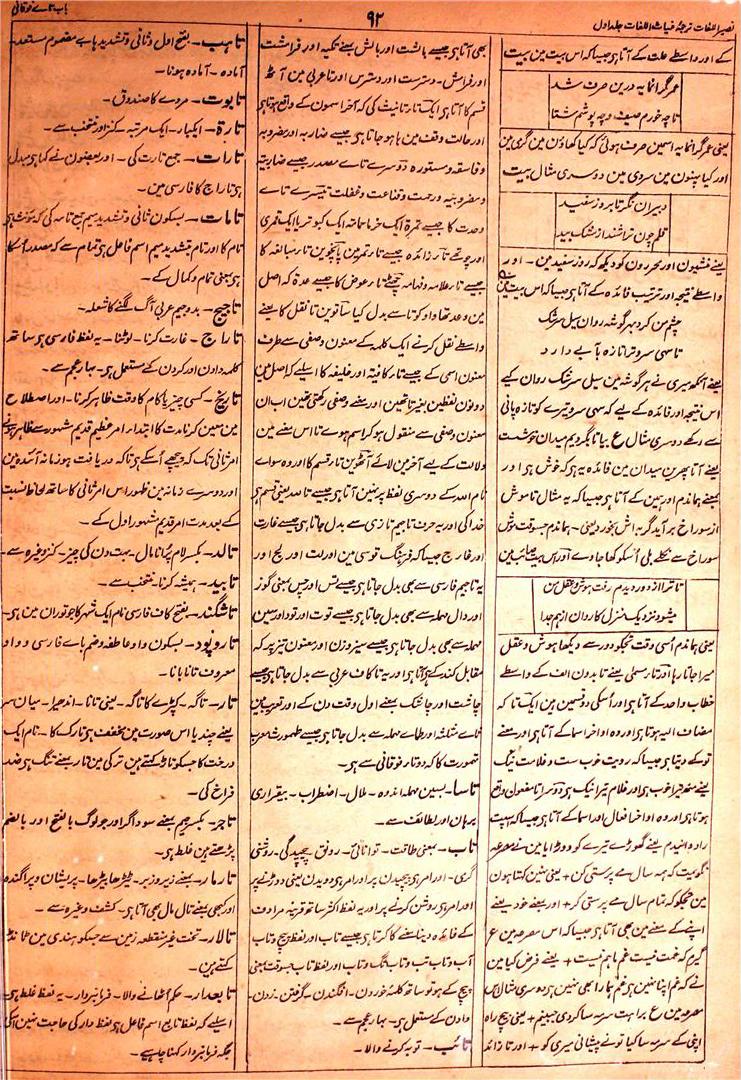 نصیر اللغات ترجمۂ غیاث اللغات جلد اول
۹۲
باب تاے فوقانی
کے اور واسطے علت کے آتا ہی جیسا کہ اس بیت مین بیت
عمر گرانمایہ درین صرف شد
تا چہ خورم صیف و چہ پوشم شتا
یعنی عمر گرانمایہ اسمین صرف ہوئی کہ کیا کھاؤن مین گرمی مین
اور کیا پہنون مین سردی مین دوسری مثال بیت
دبیران نگر تا بروز سفید
قلم چون تراشند از مشک بید
یعنے منشیون اور محررون کو دیکھ کہ روز سفید مین - اور
واسطے نتیجہ اور ترتب فائدہ کے آتا ہی جیسا کہ اس بیت مین
چشم من کرد بہر گوشہ روان سیل سرشک
تا سہی سرو ترا تازہ بآبے دارد
یعنے آنکھ میری نے ہر گوشہ مین سیل سرشک روان کیے
اس نتیجہ اور فائدہ کے لیے کہ سہی سرو تیرے کو تازہ پانی
سے رکھے دوسری مثال ع بیا تا بگردیم میدان خوشست
یعنے آ تا پھرین میدان مین فائدہ یہ ہی کہ خوش ہی اور
بمعنے ہماندم اور ہمین کے آتا ہی جیسا کہ یہ مثال تا موش
از سوراخ برآید گربہ اش بخورد یعنی - ہماندم جسوقت موش
سوراخ سے نکلے بلی اُسکو کھا جاوے اور اس بیت صائب مین
تا ترا از دور دیدم رفت ہوش و عقل من
میشود نزدیک منزل کاروان از ہم جدا
یعنی ہماندم اُسی وقت تجکو دور سے دیکھا ہوش و عقل
میرا جاتا رہا اور تا رسمی یعنے تا بدون الف کے واسطے
خطاب واحد کے آتا ہی اور اُسکی دو قسمین ہین ایک تا کہ
مضاف الیہ ہوتا ہی اور وہ اواخر اسما کے آتا ہی اور معنے
تو کے دیتا ہی جیسا کہ رویت خوب ست و غلامت نیک
یعنے منھ تیرا خوب ہی اور غلام تیرا نیک ہی دوسرا تا مفعول واقع
ہوتا ہی اور وہ اواخر افعال اور اسما کے آتا ہی جیسا کہ اسپت
را دوانیدم یعنے گھوڑے تیرے کو دوڑایا مین نے مصرعہ
نگویمت کہ ہمہ سال مے پرستی کن + یعنی نہین کہتا ہون
مین تجکو کہ تمام سال مے پرستی کر + اور بمعنے خود یعنے
اپنے کے معنے مین بھی آتا ہی جیسا کہ اس مصرعہ مین ع
گیرم کہ غمت نیست غم ما ہم نیست + یعنے فرض کیا مین
نے کہ غم اپنا نہین ہی غم ہمارا بھی نہین ہی دوسری مثال اس
اپنی کے سرمہ سا کیا تونے پیشانی میری کو + اور تا زائد
بھی آتا ہی جیسے بالشت اور بالش بمعنے تکیہ اور فراشت
اور فراش - و مترست اور مترس اور تا عربی مین آٹھ
قسم کا آتا ہی ایک تار تانیث کی کہ آخر اسمون کے واقع ہوتا ہی
اور حالت وقف مین ہا ہو جاتا ہی جیسے ضاربہ اور مضروبہ
و فاسقہ و مستورہ دوسرے تاے مصدر جیسے ضاربیت
و مضروبیہ و رحمت و قناعت و غفلت تیسرے تاے
وحدت کا جیسے تمرۃ ایک خرما تمامہ ایک کبوتر یا ایک قمری
اور چوتھے تار زائدہ جیسے تار تمرین پانچوین تار مبالغہ کا
جیسے تار علامہ و فہامہ چھٹے تار عوض کا جیسے عدۃ کہ اصل
مین وعد تھا واو کو تا سے بدل کیا ساتوین تا نقل کا یعنے
واسطے نقل کرنے ایک کلمہ کے معنون وصفی سے طرف
معنون اسمی کے جیسے تار کافیۃ اور خلیفہ کا اسلیے کہ اصل مین
دونون لفظین بغیر تا تھین اور معنے وصفی رکھتی تھین اب ان
معنون وصفی سے منقول ہو کر اسم ہوے تا اس معنے مین
دلالت کے لیے آخر مین لائے آٹھوین تار قسم کا اور وہ سواے
نام اللہ کے دوسری لفظ پر نہین آتا ہی جیسے تاللہ یعنی قسم ہی
خدا کی اور یہ حرف تا جیم تازی سے بدل جاتا ہی جیسے غارت
اور غارج جیسا کہ فرہنگ قوسی مین اور لت اور لج اور
یہ تا جیم فارسی سے بھی بدل جاتا ہی جیسے تس اور چس بمعنی گوز
اور دال مہملہ سے بھی بدل جاتا ہی جیسے توت اور تود اور سین
مہملہ سے بھی بدل جاتا ہی جیسے سیز وزن اور معنون تیز پر کہ
مقابل کند کے ہی آتا ہی اور یہ تا کاف عربی سے بدل جاتا ہی جیسے
چاشت اور چاشک بمعنے اول وقت دن کے اور تعریب مین
ثاے مثلثہ اور طاے مہملہ سے بدل جاتا ہی جیسے طہمورث معرب
تہمورت کا کہ دو تار فوقانی سے ہی -
تاسا - بسین مہملہ اندوہ - ملال - اضطراب - بیقراری
برہان اور لطائف سے -
تاب - بمعنی طاقت - توانائی - رونق - پیچیدگی - روشنی
گرمی - اور امر ہی پیچیدن پر اور امر ہی دویدن یعنی دوڑنے پر
اور امر ہی روشن کرنے پر اور یہ لفظ اکثر ساتھ قرینہ مرادف
کے فائدہ دیتا ہے معنے کا کرتا ہی جیسے تاب اور لفظ پیچ و تاب
آب و تاب تب و تاب تگ و تاب اور لفظ تاب جسوقت بمعنی
پیچ کے ہو تو ساتھ کلمہ خوردن - افگندن - گرفتن - زدن -
دادن کے مستعمل ہی - بہار عجم سے -
تائب - توبہ کرنے والا -
تاہب - بفتح اول و ثانی و تشدید ہاے مضموم مستعد -
آمادہ - آمادہ ہونا -
تابوت - مردے کا صندوق -
تارۃ - ایکبار - ایک مرتبہ - کنز اور منتخب سے -
تارات - جمع تارت کی - اور بعضون نے کہا ہی مبدل
ہی تاراج کا فارسی مین -
تامات - بسکون ثانی و تشدید میم جمع تامہ کی کہ مؤنث ہی
تام کا اور تام بتشدید میم اسم فاعل ہی تمام سے کہ مصدر اُسکا
ہی بمعنی تمام و کمال کے -
تاجج - بدو جیم عربی آگ لگنے کا شعلہ -
تاراج - غارت کرنا - لوٹنا - یہ لفظ فارسی ہی ساتھ
کلمہ دادن اور کردن کے مستعمل ہی - بہار عجم سے -
تاریخ - کسی چیز یا کام کا وقت ظاہر کرنا - اور اصطلاح
مین معین کرنا مدت کا ابتدا امر عظیم قدیم مشہور سے ظاہر ہونے
امر ثانی تک کہ پیچھے اُسکے ہی تا کہ دریافت ہو زمانہ آئندہ مین
اور دوسرے زمانہ مین ظہور اس امر ثانی کا ساتھ لحاظ نسبت
کے بعد مدت امر قدیم مشہور اول کے -
تالد - بکسر لام پُرانا مال - بہت دن کی چیز - کنز وغیرہ سے -
تابید - ہمیشہ کرنا - منتخب سے -
تاشگند - بفتح کاف فارسی نام ایک شہر کا جو توران مین ہی -
تاروپود - بسکون واو عاطفہ و ضم باے فارسی و واو
معروف تانا بانا -
تار - تاگہ - کپڑے کا تاگہ - یعنی تانا - اندھیرا - میان سر
یعنے چندیا اس صورت مین مخفف ہی تارک کا - نام ایک
درخت کا جسکو تاڑ کہتے ہین ترکی مین تار بمعنے تنگ ہی ضد
فراخ کی -
تاجر - بکسر جیم بمعنے سوداگر اور جو لوگ بالفتح اور بالضم
پڑھتے ہین غلط ہی -
تارمار - بمعنے زیر و زبر - ٹیڑھا بیڑھا - پریشان و پراگندہ
اور کبھی بمعنے تال مال بھی آتا ہی - کشف وغیرہ سے -
تالار - تخت غیر منقطعہ زمین سے جسکو ہندی مین ٹانڈ
کہتے ہین -
تابعدار - حکم اُٹھانے والا - فرمانبردار - یہ لفظ غلط ہی
اسلیے کہ لفظ تابع اسم فاعل ہی لفظ دار کی حاجت نہین اُسکی
جگہ فرمانبردار کہنا چاہیے -